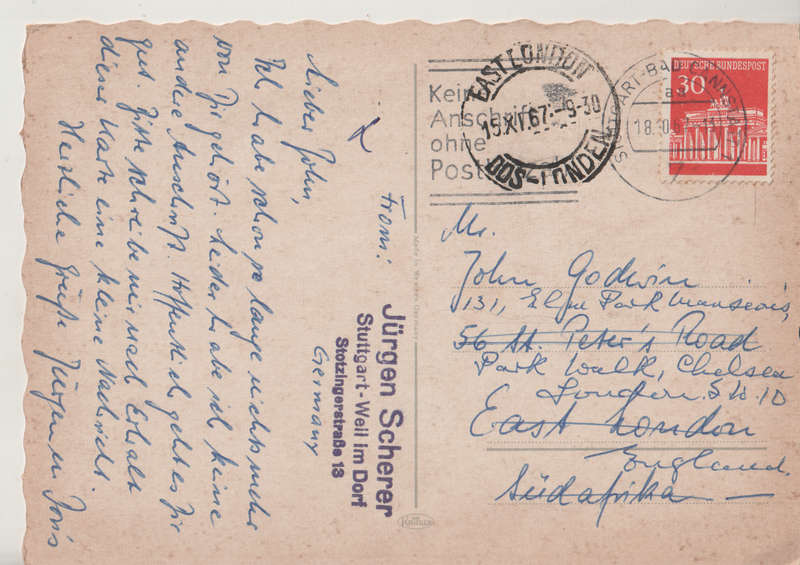 Lieber John,
Ich habe schon so lange nichts mehr
von Dir gehört. Leider habe ich keine
andere Anschrift. Hoffentlich geht es Dir
gut. Bitte schreibe mir nach Erhalt
dieser Karte eine kleine Nachricht.
Herzliche Grüße Jürgen u. Doris
From:
Jürgen Scherer
Stuttgart-Weil im Dorf
Stotzingerstraße 13
Germany
Made in Western Germany
Kein
Anschrift
ohne
Post
EAST LONDON
15 XI 67 - 9-30
OOS-LONDEN
DEUTSCHE BUNDESPOST
30
STUTTGART-BAD CANNSTATT
18.
Mr.
John Godwin
131, Elm Park Mansions,
56 St. Peter's Road
Park Walk, Chelsea
London. S.W. 10
East London
England.
Südafrika